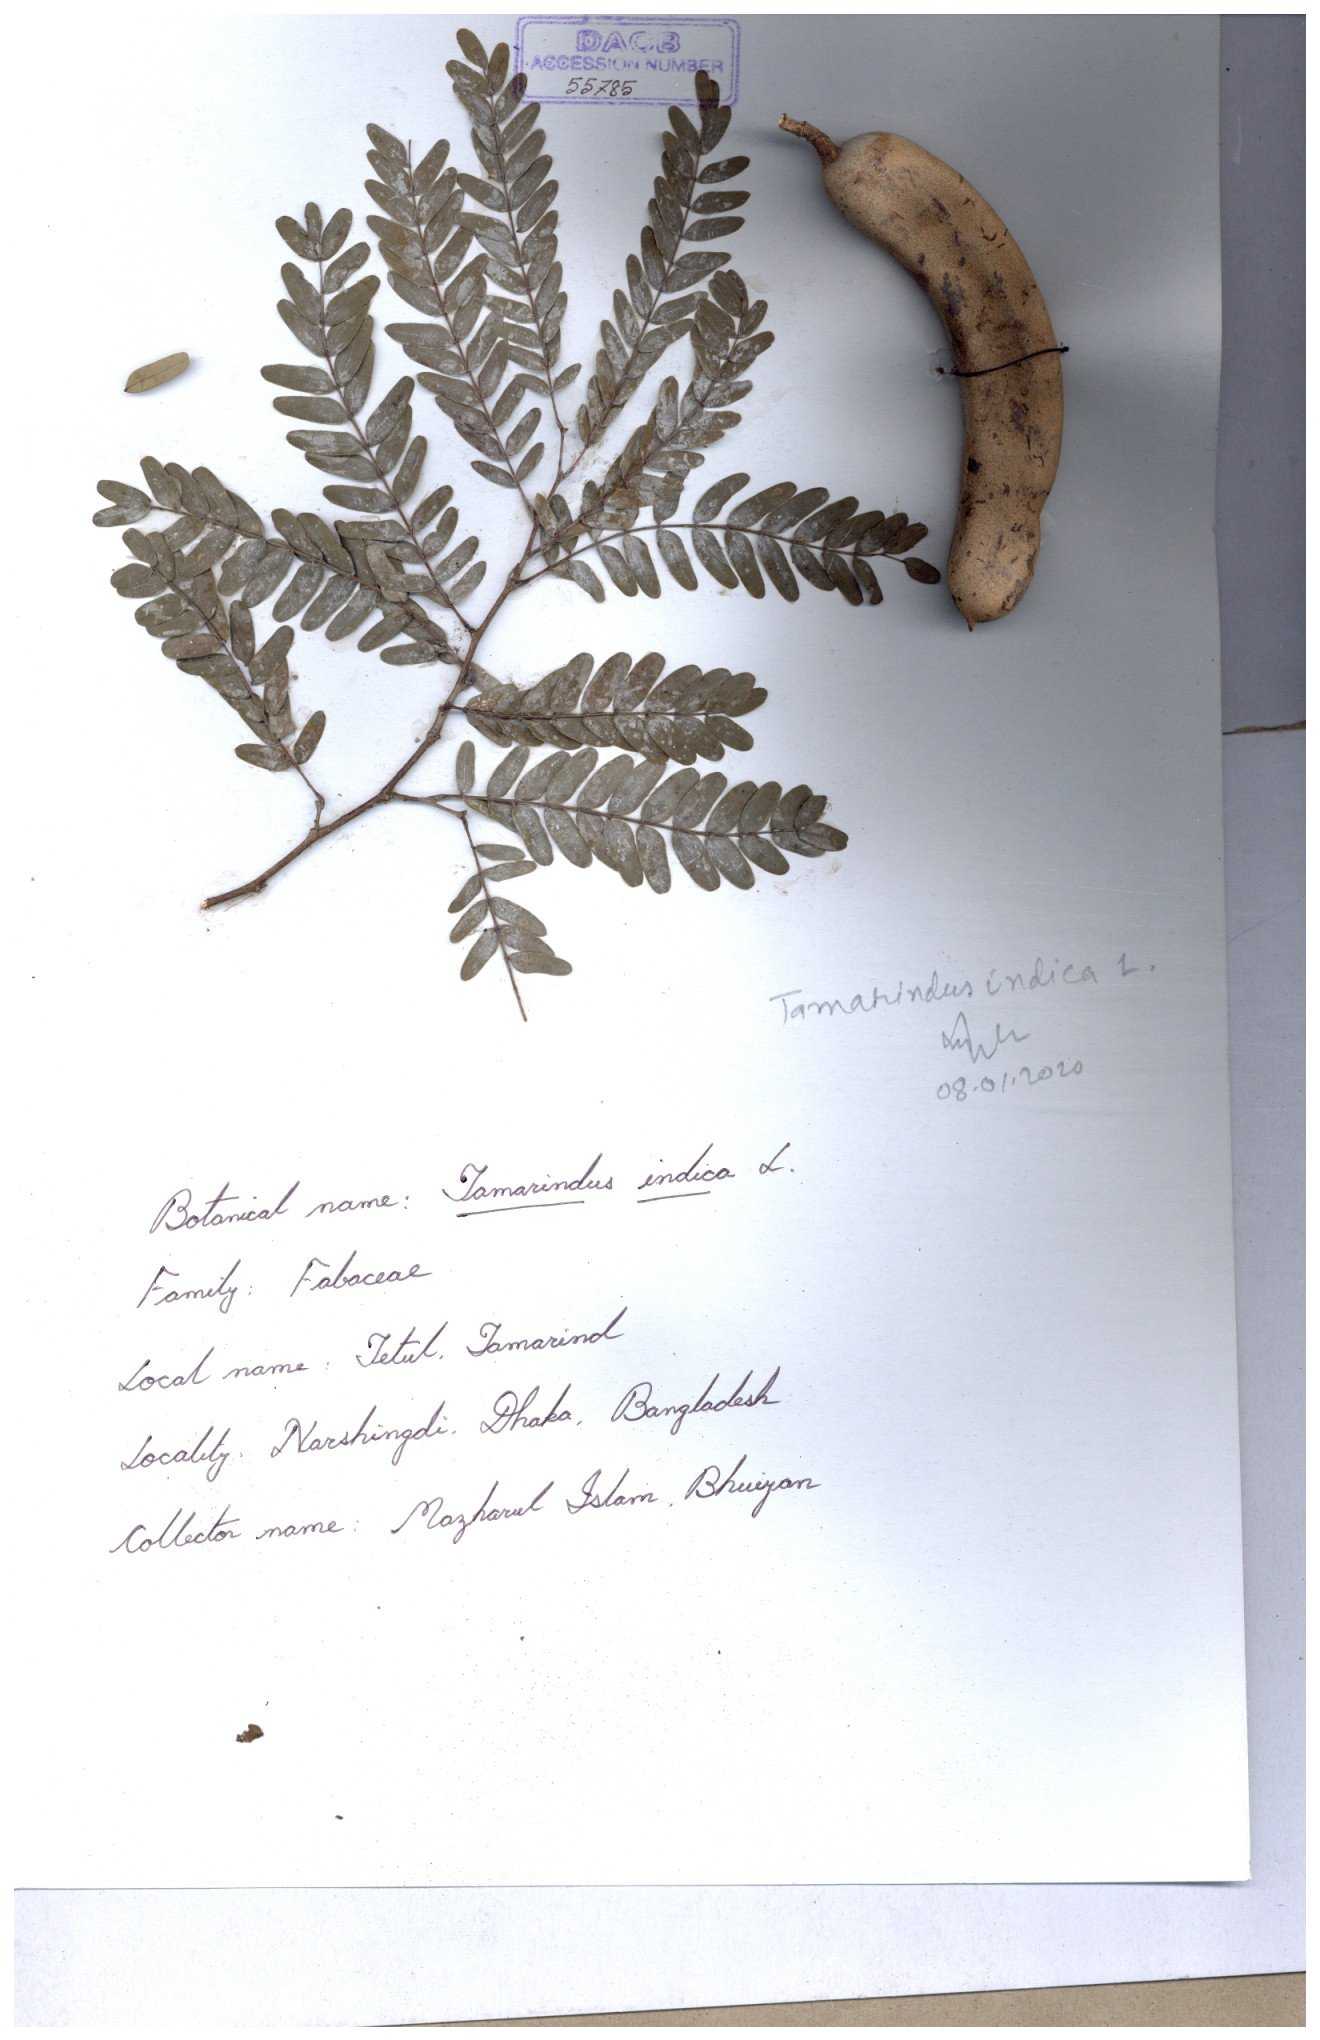 DACB
ACCESSION NUMBER
55785
Tamarindus indica L.
08.01.2020
Botanical name: Tamarindus indica L.
Family: Fabaceae
Local name: Tetul, Tamarind
Locality: Narshingdi, Dhaka, Bangladesh
Collector name: Mazharul Islam, Bhuiyan